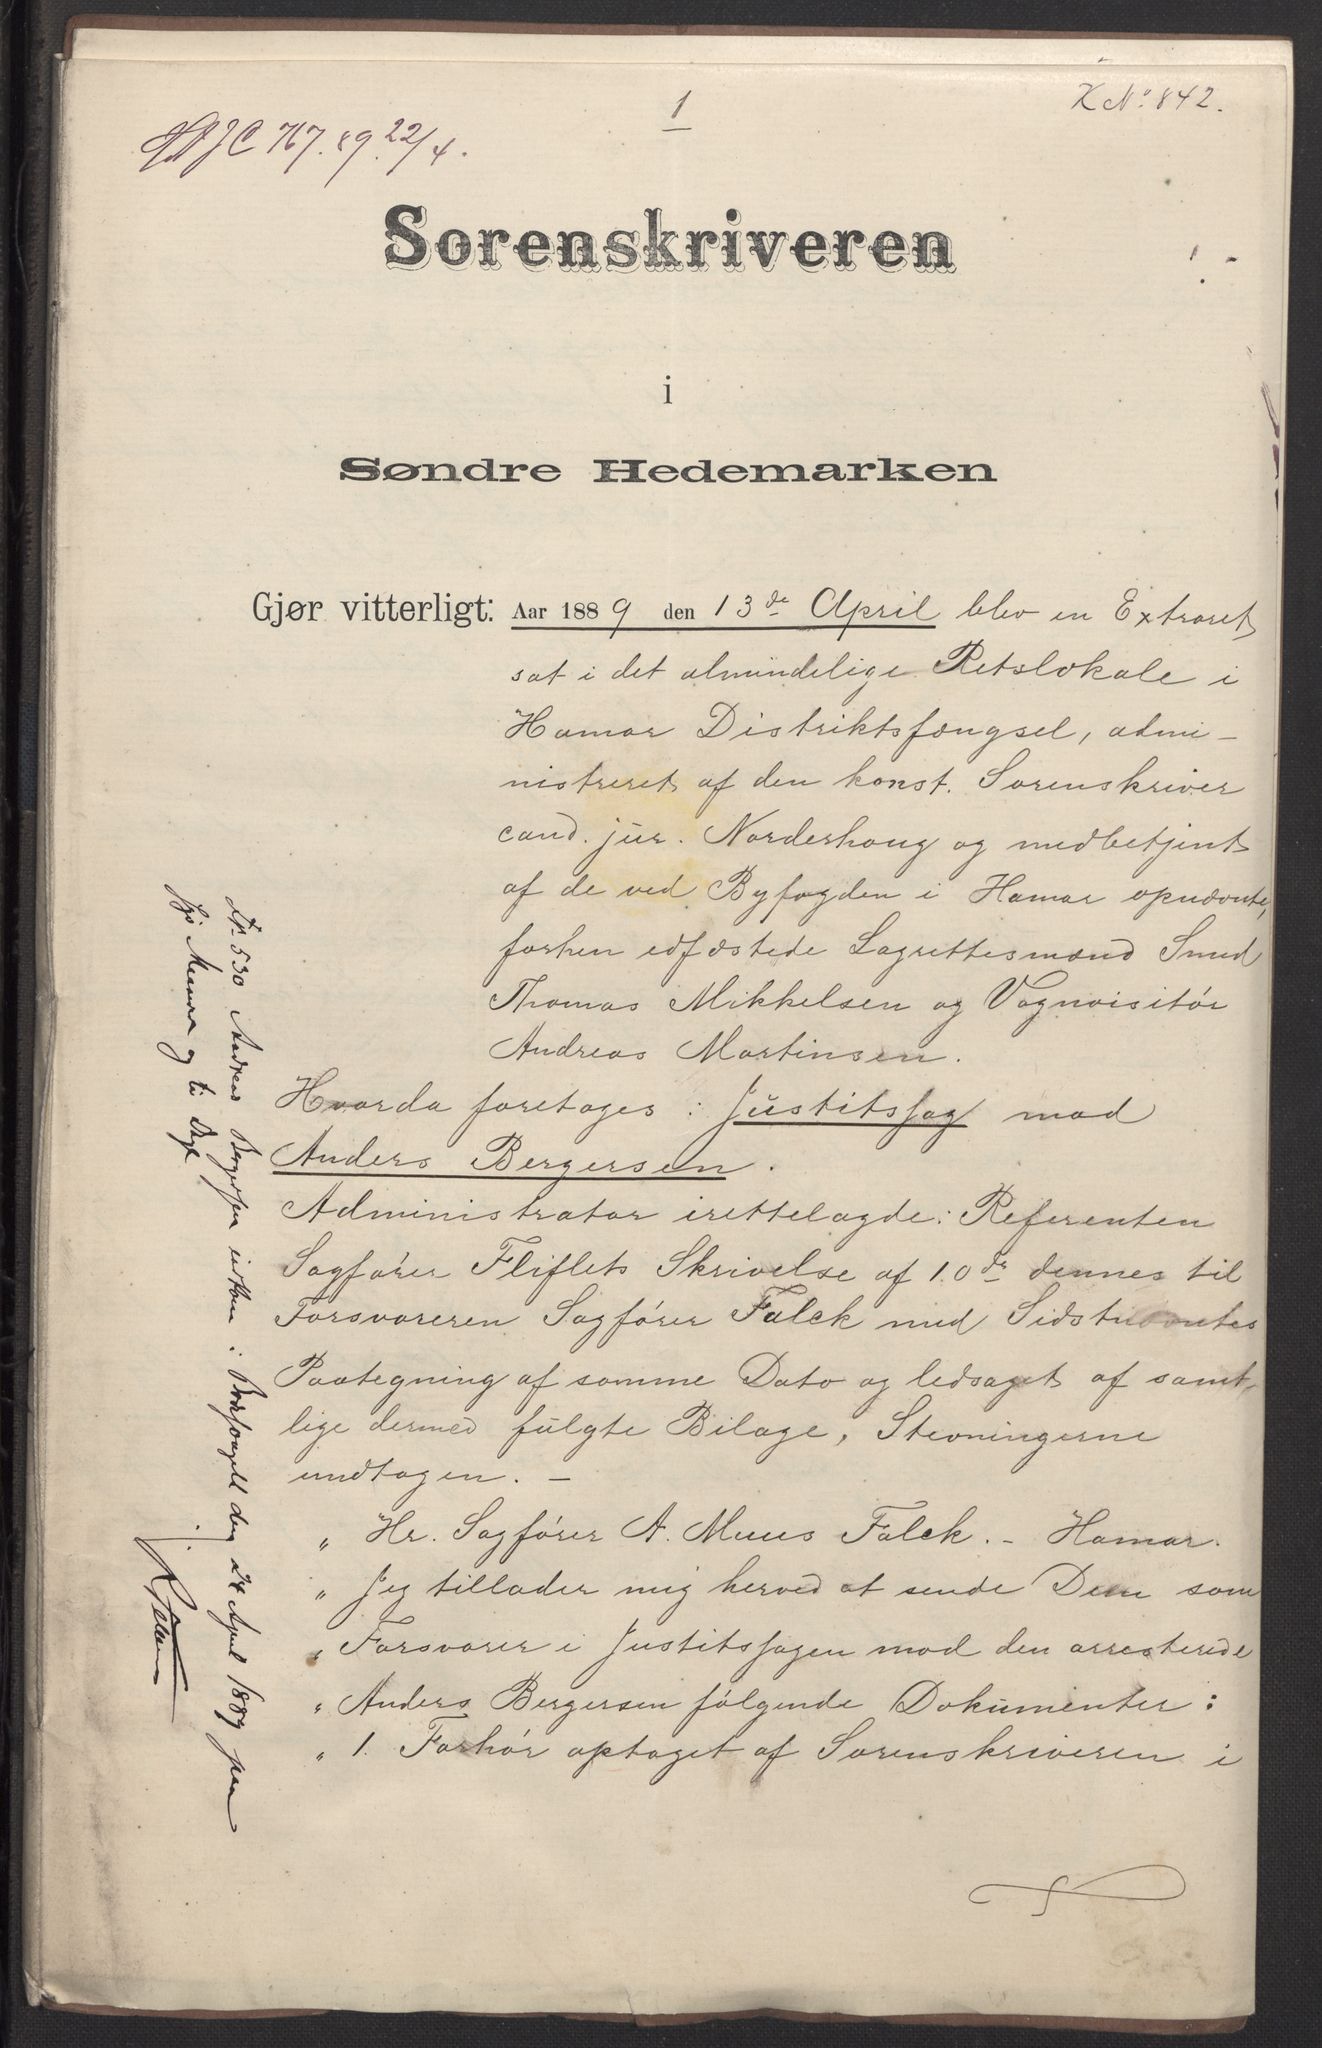 1
K No 842.
JC 767.89.22/4.
Sorenskriveren
i
Søndre Hedemarken
Gjør vitterligt: Aar 1889 den 13de April blev en Extraret
sat i det almindelige Retslokale i
Hamar Distriktsfængsel, admi-
nistreret af den konst. Sorenskriver
cand. jur. Norderhoug og medbetjent
af de ved Byfogden i Hamar opnævnte,
forhen edfæstede Lagrettesmænd Smed
Thomas Mikkelsen og Vognvisitør
Andreas Martinsen.
Hvorda foretoges: Justitssag mod
Anders Bergersen.
Administrator irettelagde: Referenten
Sagfører Fliflets Skrivelse af 10de dennes til
Forsvareren Sagfører Falck med Sidstnævntes
Paategning af samme Dato og ledsaget af samt-
lige dermed fulgte Bilage, Stevningerne
undtagen. –
„ Hr. Sagfører A. Muus Falck. – Hamar.
„ Jeg tillader mig herved at sende Dem som
„ Forsvarer i Justitssagen mod den arresterede
„ Anders Bergersen følgende Dokumenter:
„ 1. Forhør optaget af Sorenskriveren i
No 530 Andreas Bergersen i Bodsfængslet den 24 April 1889 paa
og ti Dage